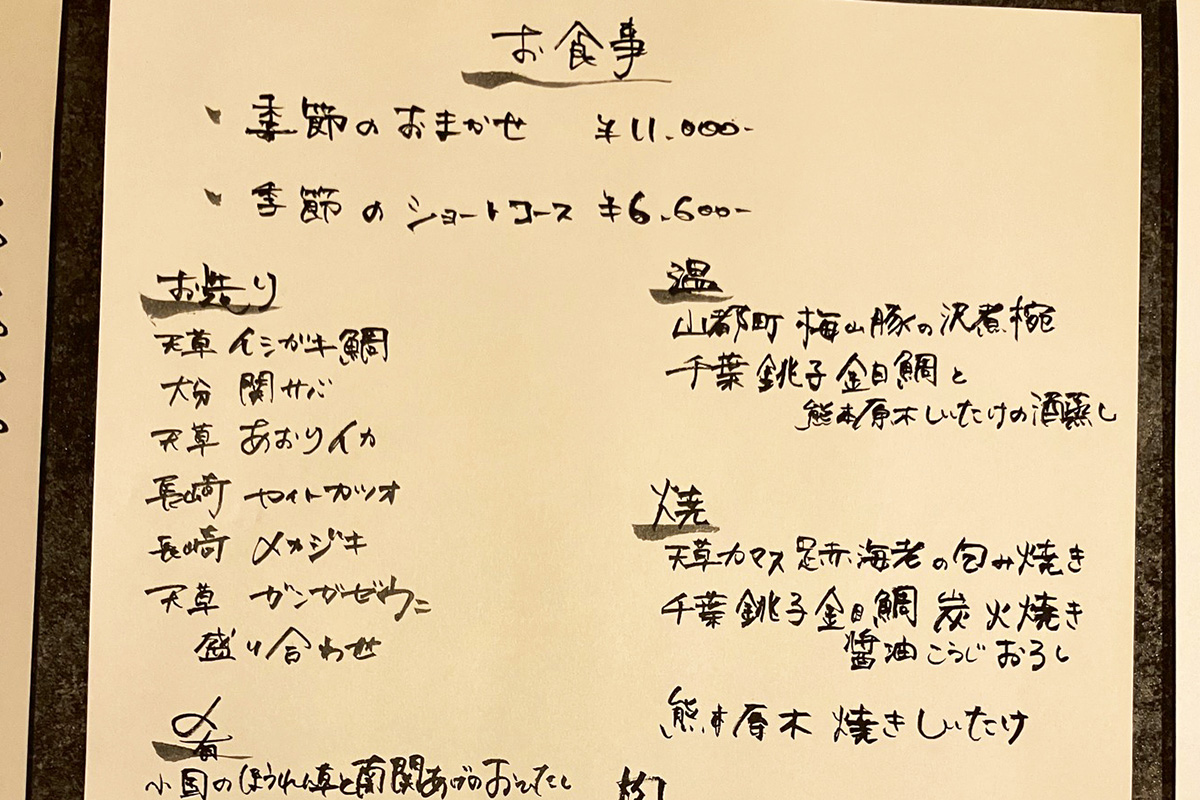 お食事
季節のおまかせ ¥11.000-
季節のショートコース ¥6.600-
お造り
天草 イシガキ鯛
大分 関サバ
天草 あおりイカ
長崎 ヤイトカツオ
長崎 メカジキ
天草 ガンガゼウニ
盛り合わせ
肴
小国のほうれん草と南関あげのおひたし
温
山都町 梅山豚の沢煮椀
千葉 銚子 金目鯛と
熊本原木しいたけの酒蒸し
焼
天草カマス 足赤海老の包み焼き
千葉 銚子金目鯛 炭火焼き
醤油こうじおろし
熊本原木 焼きしいたけ